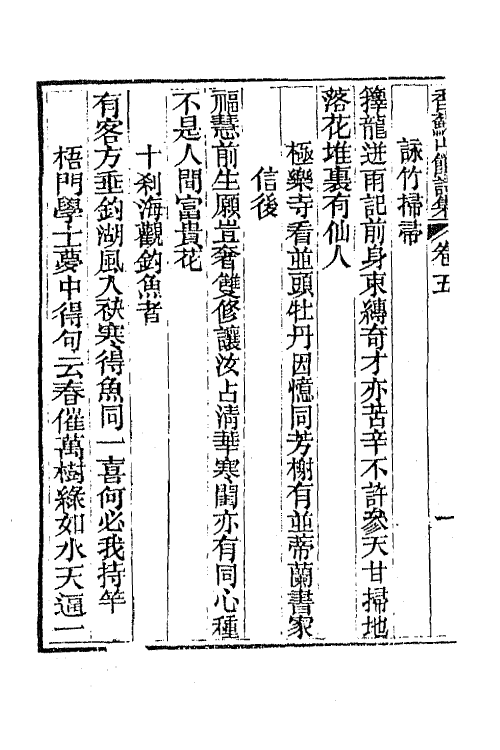 香蘇山館詩集 卷五 一
詠竹掃帚
籜龍迸雨記前身束縛奇才亦苦辛不許參天甘掃地
落花堆裏有仙人
極樂寺看並頭牡丹因憶同芳榭有並蒂蘭書寄
信後
福慧前生願豈奢雙修讓汝占清華寒閨亦有同心種
不是人間富貴花
十刹海觀釣魚者
有客方垂釣湖風入袂寒得魚同一喜何必我持竿
梧門學士夢中得句云春催萬樹綠如水天逼二